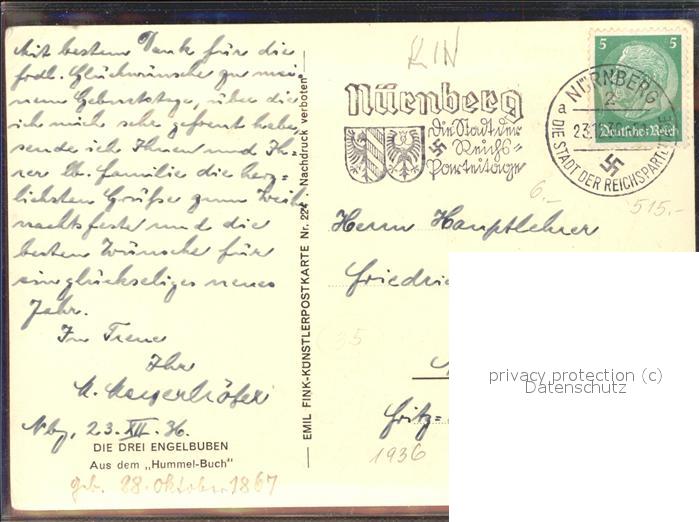 Mit bestem Dank für die
frdl. Glückwünsche zu mei
nem Geburtstage, über die
ich mich sehr gefreut habe
sende ich Ihnen und Ih-
rer lb. Familie die herz-
lichsten Grüße zum Weih
nachtsfeste und die
besten Wünsche für
ein glückseliges neues
Jahr.
In Treue
Ihr
Nbg, 23. XII. 36.
DIE DREI ENGELBUBEN
Aus dem „Hummel-Buch"
geb. 28. Oktober 1867
EMIL FINK-KÜNSTLERPOSTKARTE Nr. 224 . Nachdruck verboten
Nürnberg
Die Stadt der
Reichs-
parteitage
NÜRNBERG
2
a
DIE STADT DER REICHSPARTEITAGE
5 5
Deutsches Reich
6.-
515.-
Herrn Hauptlehrer
Friedri
35
Fritz-
1936
privacy protection (c)
Datenschutz